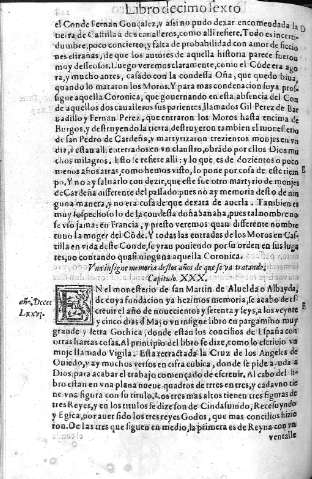 Libro decimo sexto
el Conde Fernan Gonçalez, y assi no pudo dexar encomendada la
tierra de Castilla a dos caualleros, como alli refiere. Todo es incerti-
dumbre, poco concierto, y falta de probabilidad con amor de ficcio
nes estrañas, de que los autores de aquella historia parece fueron
muy desseosos. Luego veremos claramente, como el Cõde era ago-
ra, y mucho antes, casado con la condessa Oña, que quedo biua,
quando lo mataron los Moros. Y para mas condenacion suya prosi
gue aquella Coronica, que gouernando en esta absencia del Con
de aquellos dos caualleros sus parientes, llamados Gil Perez de Bar
uadillo y Fernan Perez, que entraron los Moros hasta encima de
Burgos, y destruyendo la tierra, destruyeron tambien el monesterio
de san Pedro de Cardeña, y martyrizaron trezientos monjes en vn
dia, y estan alli enterrados en vn claustro, obrãdo por ellos Dios mu
chos milagros. Esto se refiere alli: y lo que es de dozientos o poco
menos años atras, como hemos visto, lo pone por cosa de este tiem
po. Y no ay saluarlo con dezir, que este fue otro martyrio de monjes
de Cardeña differente del passado pues no ay memoria desto de nin
guna manera, y no era cosa que dexara de auerla. Tambien es
muy sospechoso lo de la condessa doña Sancha, pues tal nombre no
se vio jamas en Francia, y presto veremos quan differente nombre
tuuo la muger del Cõde. Y todas las entradas de los Moros en Cas-
tilla en vida deste Conde, se yran poniendo por su orden en sus luga
res, no contando quasi ninguna aquella Coronica.
Vna insigne memoria destos años de que se va tratando.
Capitulo XXX.
año, Dcccc
LXXVI.
EN el monesterio de san Martin de Aluelda o Albayda,
de cuya fundacion ya hezimos memoria, se acabo de es-
creuir el año de nouecientos y setenta y seys, a los veynte
y cinco dias d Mayo vn insigne libro en pargamino muy
grande y letra Gothica, donde estan los concilios de España con
otras hartas cosas. Al principio del libro se dize, como lo escriuio vn
monje llamado Vigila. Esta retractada la Cruz de los Angeles de
Ouiedo, y ay muchos versos en cifra cubica, donde se pide ayuda a
Dios, para acabar el trabajo començado de escreuir. Al cabo del li-
bro estan en vna plana nueue quadros de tres en tres, y cada vno tie
ne vna figura con su titulo. Los tres mas altos tienen tres figuras de
tres Reyes, y en los titulos se dize son de Cindasuindo, Recesuyndo
y Egica, por auer sido los tres Reyes Godos, que mas concilios hizie
ron. De las tres que siguen en medio, la primera es de Reyna con vn
ventalle